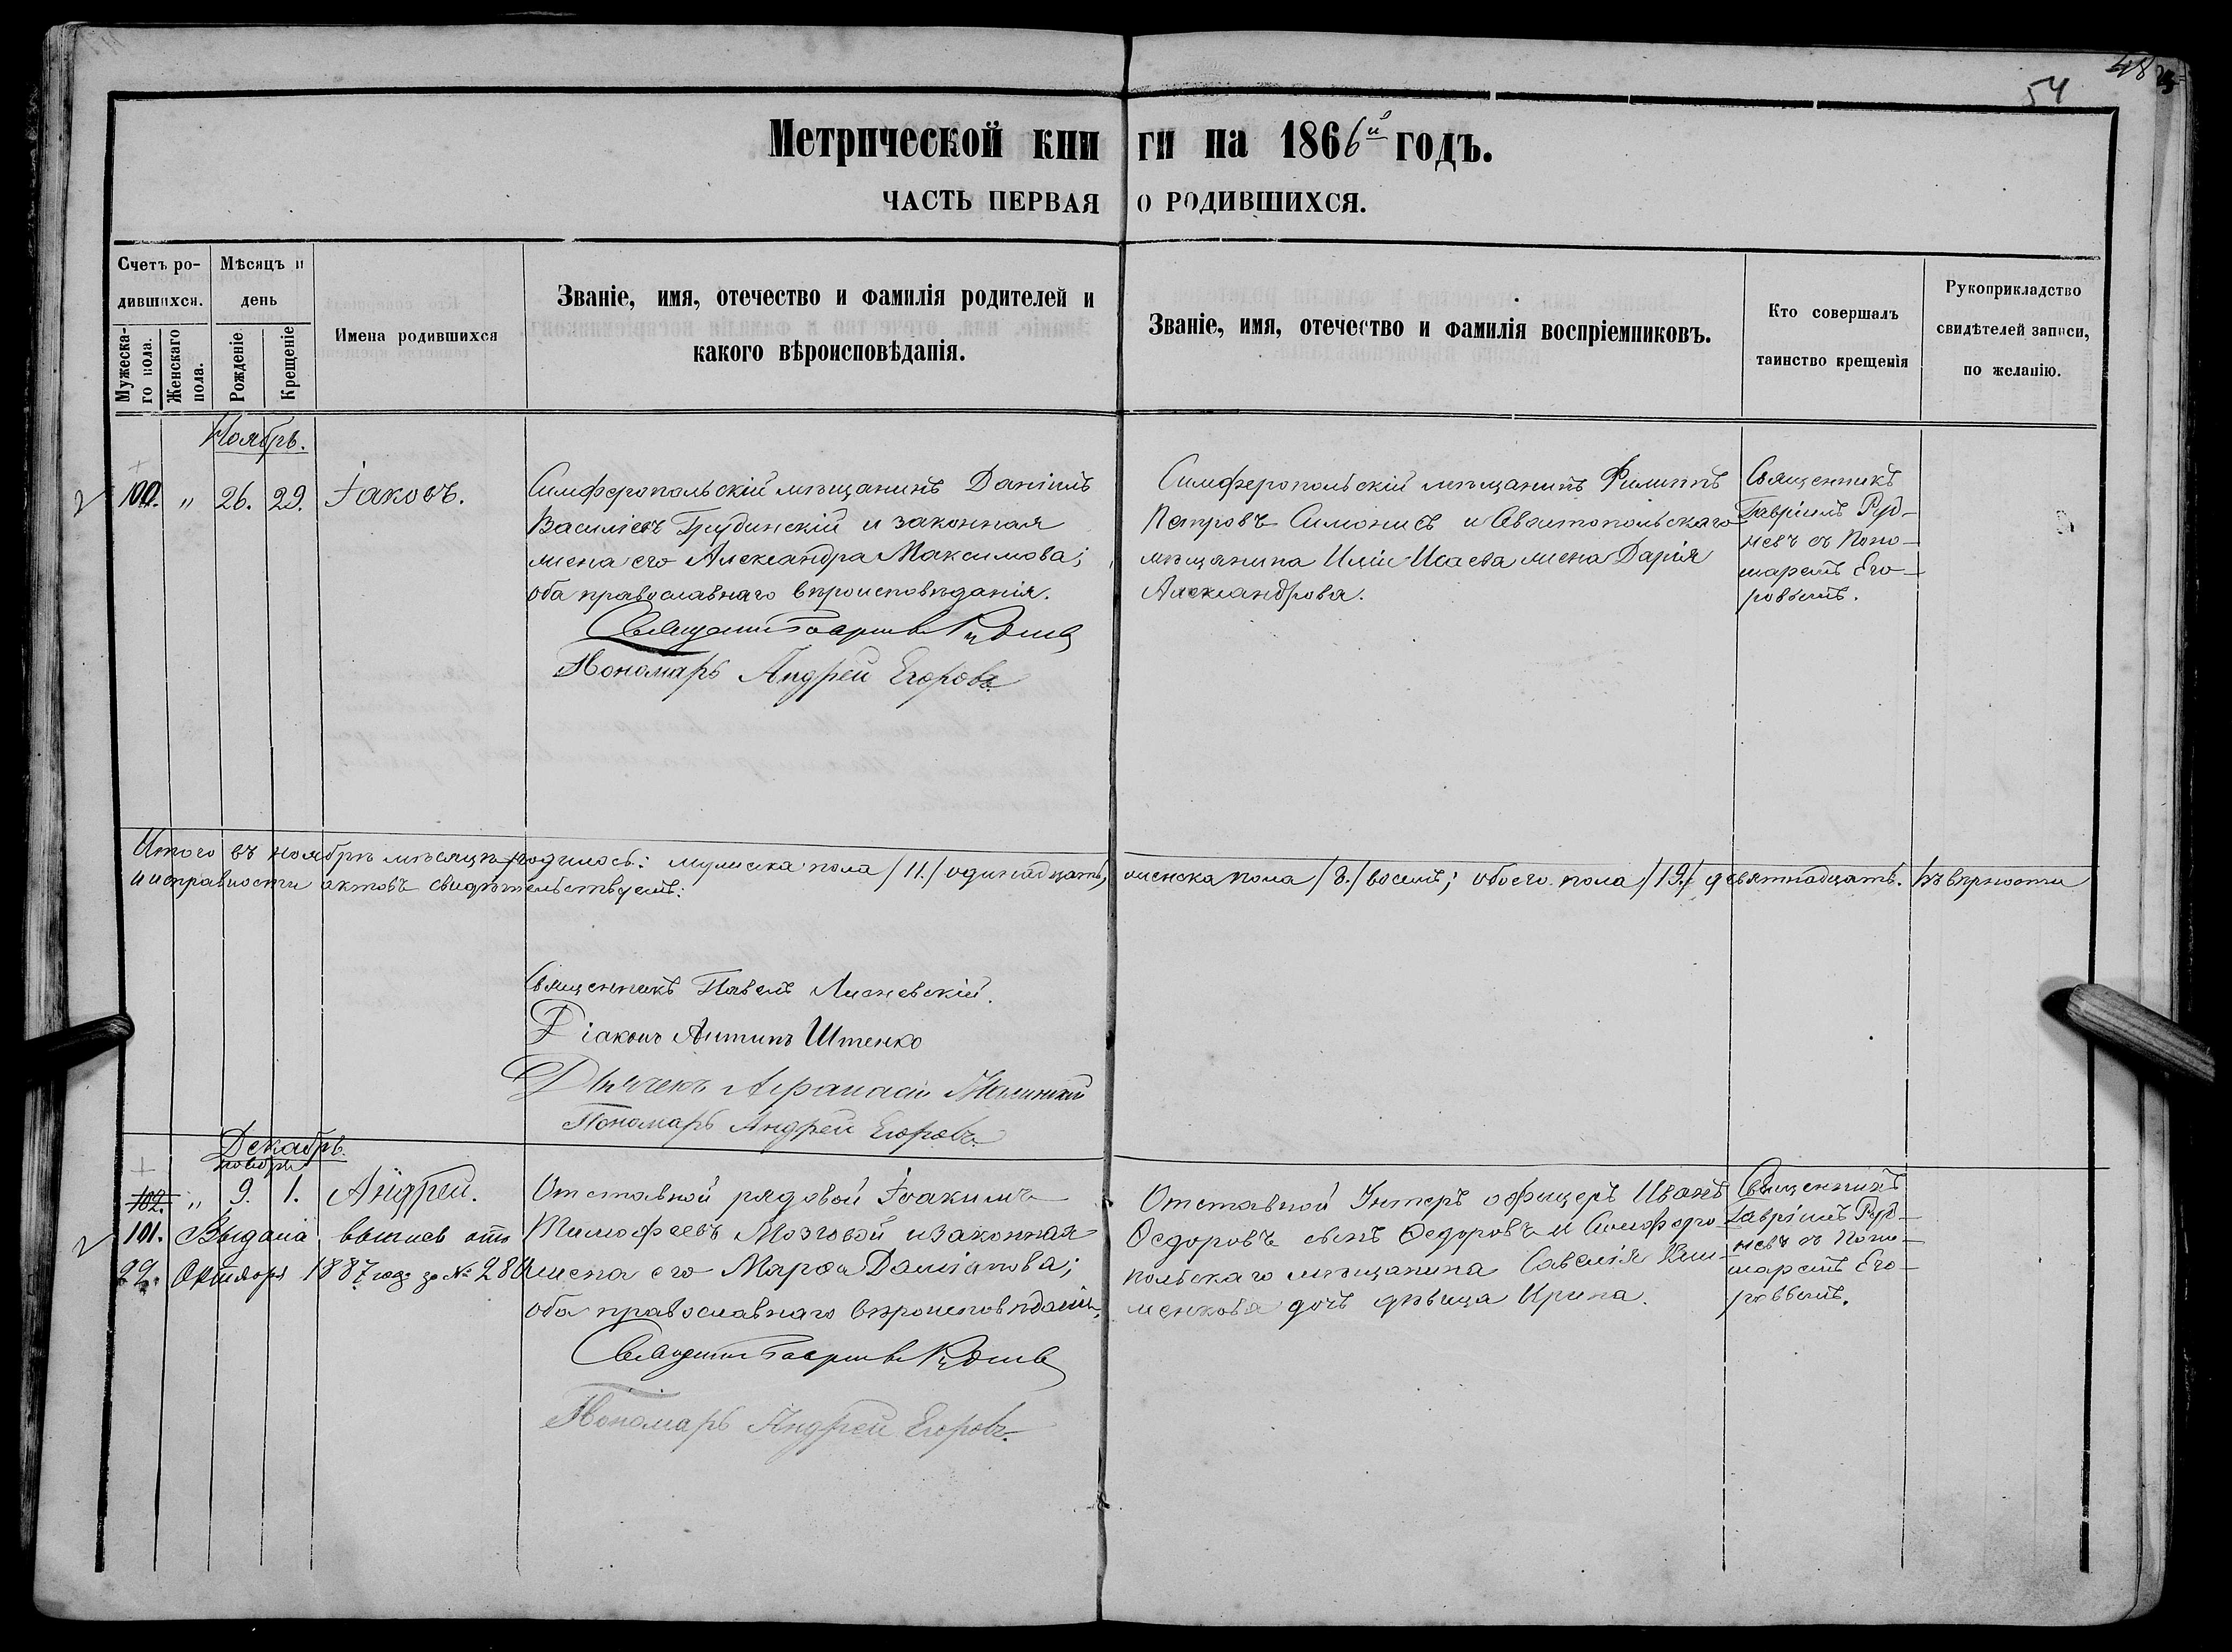 54
Метрической книги на 1866й годъ.
ЧАСТЬ ПЕРВАЯ О РОДИВШИХСЯ.
Счетъ ро-
дившихся.
Мужеска-
го пола.
Женскаго
пола.
Мѣсяцъ и
день
Рожденіе
Крещеніе
Имена родившихся
Званіе, имя, отечество и фамилія родителей и
какого вѣроисповѣданія.
Званіе, имя, отечество и фамилія воспріемниковъ.
Кто совершалъ
таинство крещенія
Рукоприкладство
свидѣтелей записи,
по желанію.
Ноябрь.
100. " 26. 29. Іаковъ.
Симферопольскій мѣщанинъ Даніилъ
Василіевъ Грудинскій и законная
жена его Александра Максимова;
оба православнаго вѣроисповѣданія.
Пономарь Андрей Егоровъ
Симферопольскій мѣщанинъ Филиппъ
Петровъ Симоницъ и Севастопольскаго
мѣщанина Иліи Исаева жена Дарія
Александрова.
Священникъ
Гавріилъ Руд-
невъ съ Поно-
маремъ Его-
ровымъ.
Итого въ ноябрѣ мѣсяцѣ родилось: мужеска пола /11./ одинадцать, женска пола /8./ восемь; обоего пола /19./ девятнадцать. Къ вѣрности
и исправности актовъ свидѣтельствуемъ:
Священникъ Павелъ
Діаконъ Антипъ Штенко
Дьячекъ Афанасій
Пономарь Андрей Егоровъ
Декабрь.
ноября
102. " 9. 1. Андрей.
101. Выдана выпись отъ
22. Октября 1887 года за № 280
Отставной рядовой Іоакимъ
Тимофеевъ Мозговой и законная
жена его Марфа Даміанова;
оба православнаго вѣроисповѣданія.
Пономарь Андрей Егоровъ.
Отставной Унтеръ офицеръ Иванъ
Ѳедоровъ сынъ Ѳедоровъ и Симферо-
польскаго мѣщанина Савелія Кли-
менкова дочь дѣвица Ирина.
Священникъ
Гавріилъ Руд-
невъ съ Поно-
маремъ Его-
ровымъ.